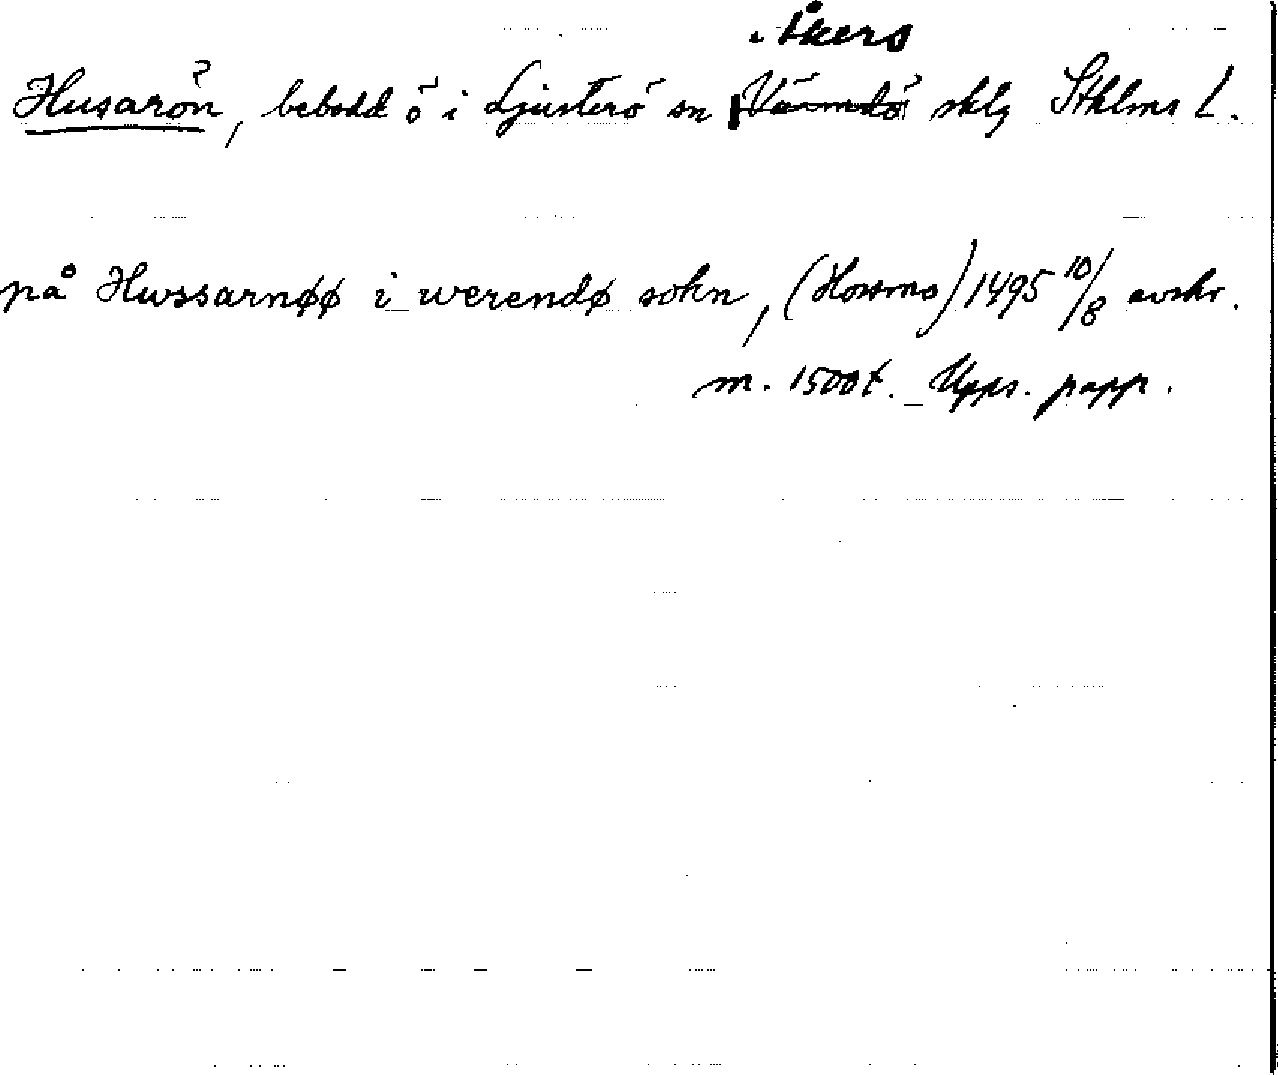 Åkers
Husarön, bebodd ö i Ljusterö sn Värmdö sklg Sthlms L.
på Hussarnøø i werendø sokn, (Hossmo) 1495 10/8 avskr.
m. 1500t. Upps. papp.